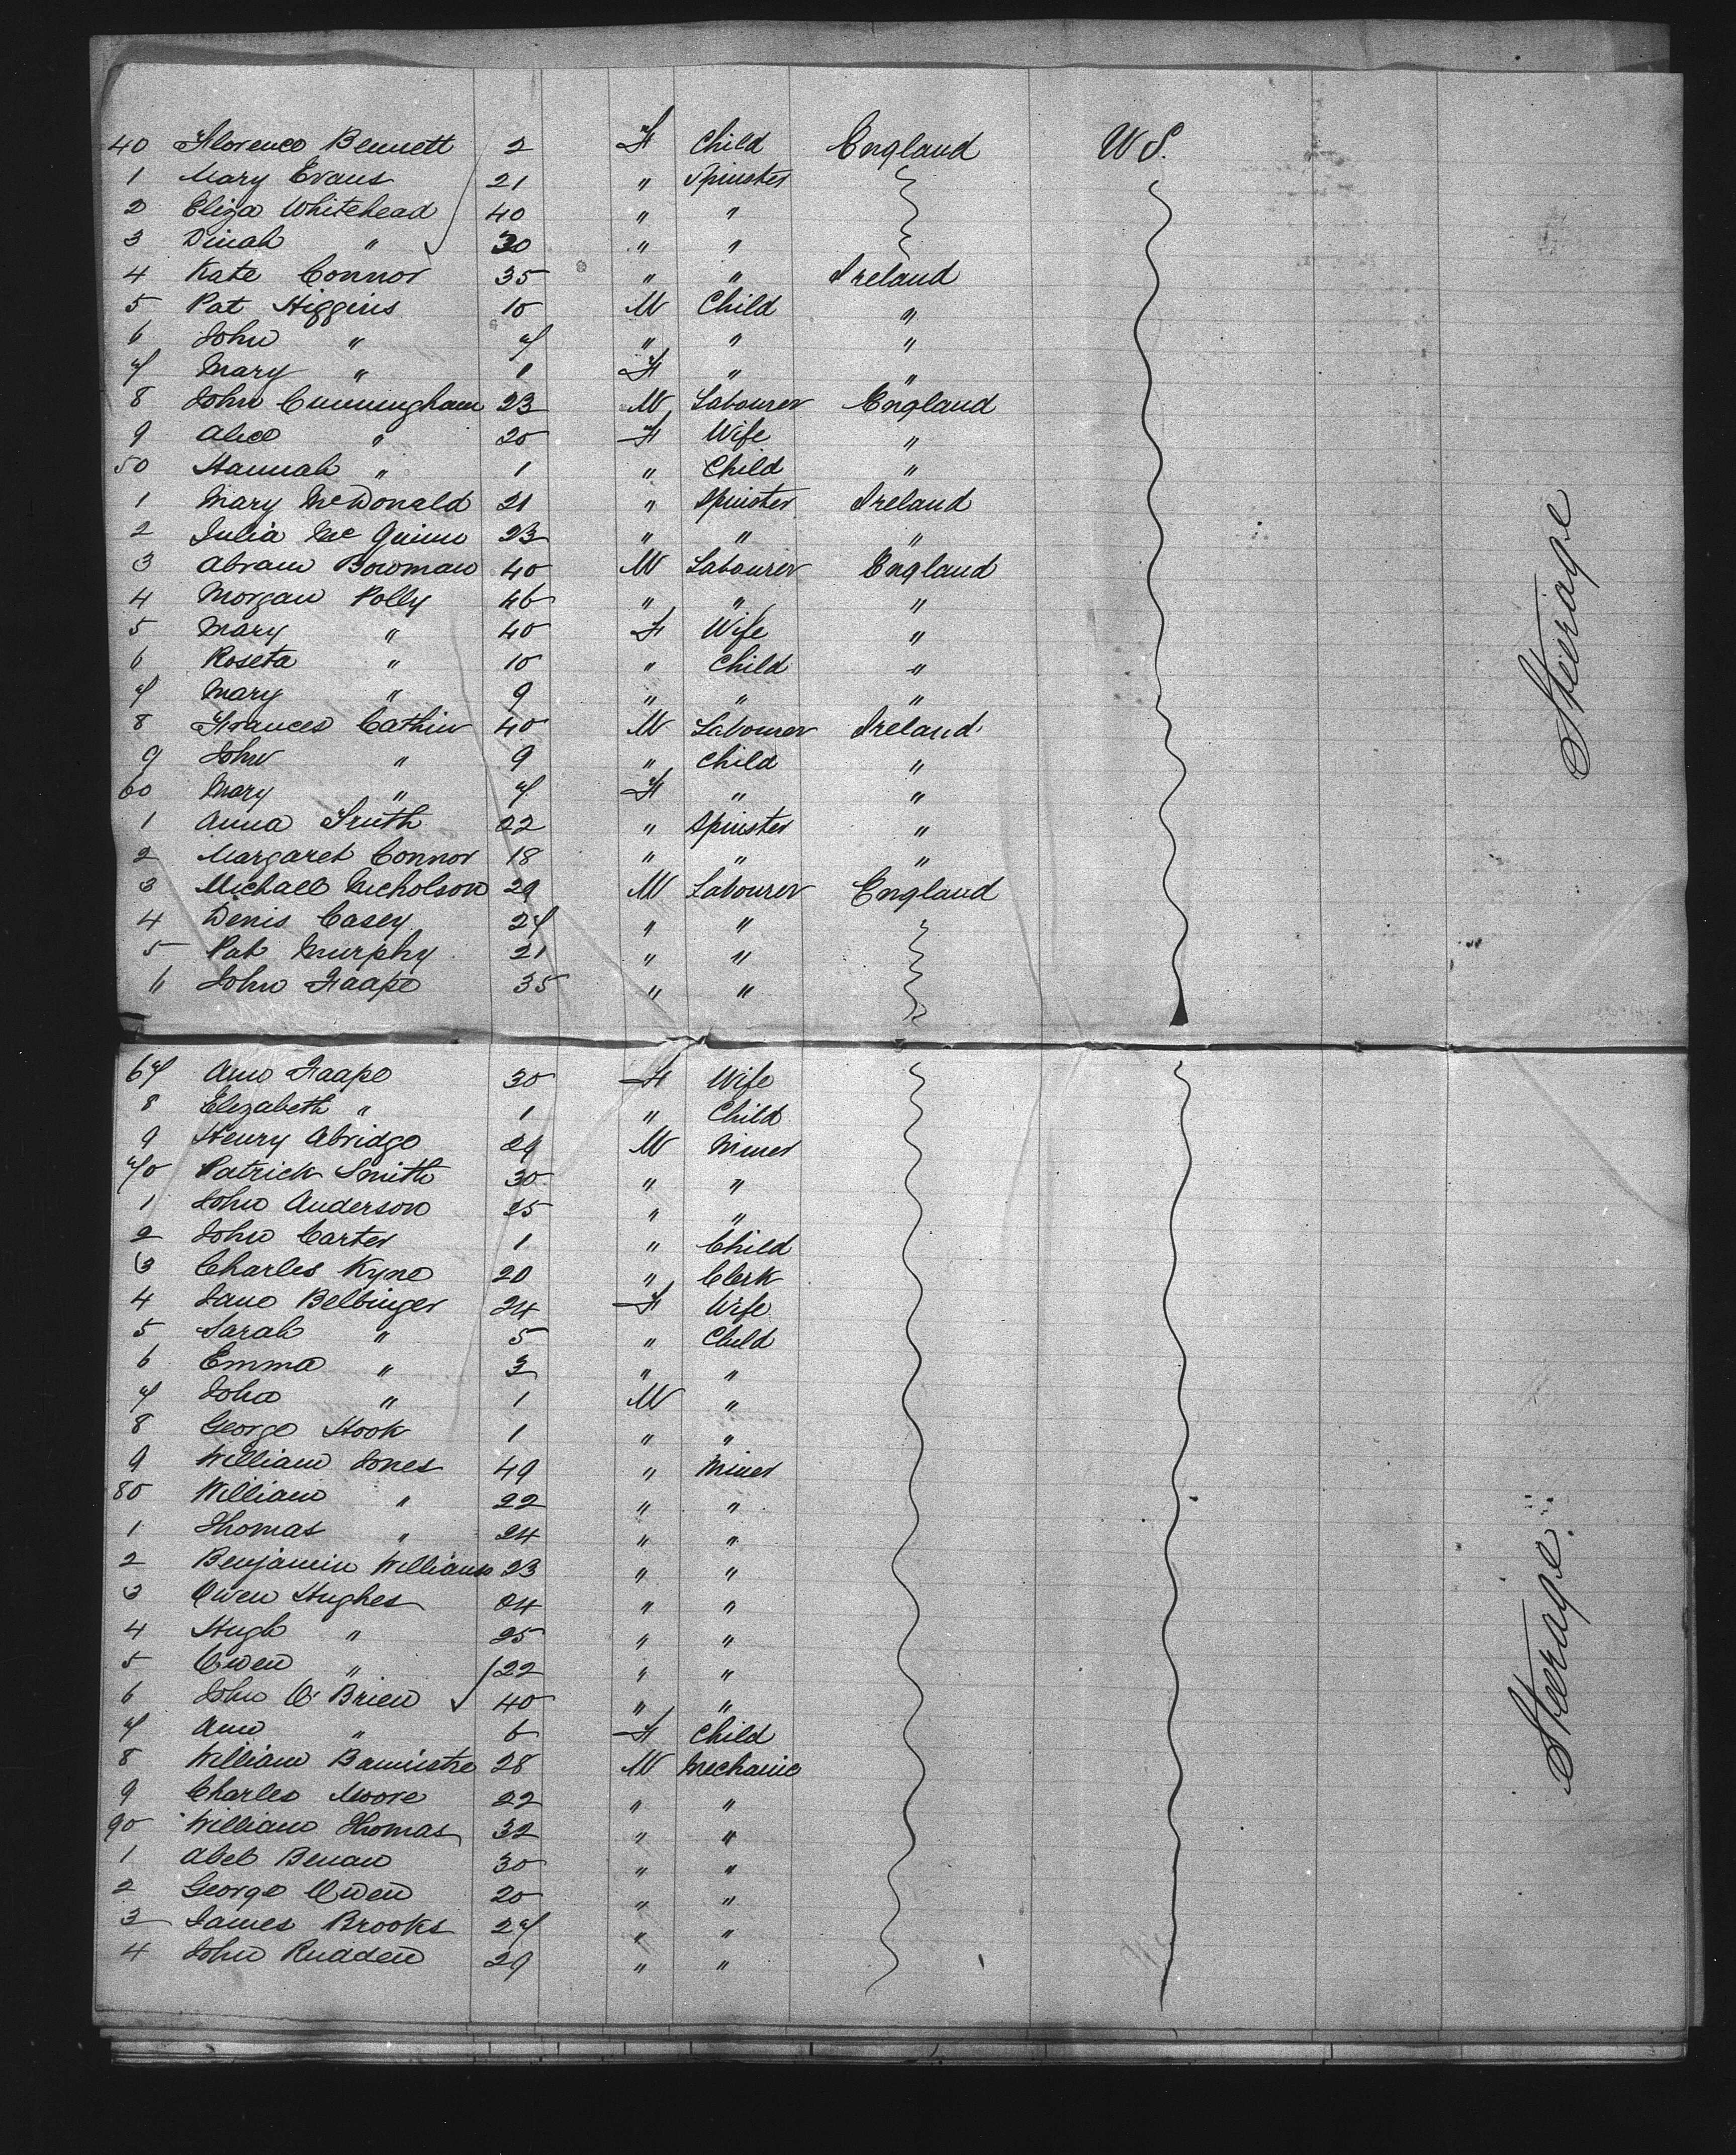 40 Florence Bennett 2 F Child England U S.
1 Mary Evans 21 " Spinster
2 Eliza Whitehead 40 " "
3 Dinah " 30 " "
4 Kate Connor 35 " " Ireland
5 Pat Higgins 10 M Child "
6 John " 7 " " "
7 Mary " 1 F " "
8 John Cunningham 23 M Labourer England
9 Alice " 20 F Wife "
50 Hannah " 1 " Child "
1 Mary McDonald 21 " Spinster Ireland
2 Julia Mc Guinn 23 " " "
3 Abram Bowman 40 M Labourer England
4 Morgan Polly 46 " " "
5 Mary " 40 F Wife "
6 Roseta " 10 " Child "
7 Mary " 9 " " "
8 Frances Cathin 40 M Labourer Ireland
9 John " 9 " Child "
60 Mary " 7 F " "
1 Anna Smith 22 " Spinster "
2 Margaret Connor 18 " " "
3 Michael Nicholson 29 M Labourer England
4 Denis Casey 27 " "
5 Pat Murphy 21 " "
6 John Haape 35 " "
Steerage
67 Ann Haape 30 F Wife
8 Elizabeth " 1 " Child
9 Henry Abridge 24 M Miner
70 Patrick Smith 30 " "
1 John Anderson 25 " "
2 John Carter 1 " Child
3 Charles Kyne 20 " Clerk
4 Jane Belbinger 24 F Wife
5 Sarah " 5 " Child
6 Emma " 3 " "
7 John " 1 M "
8 George Hook 1 " "
9 William Jones 49 " Miner
80 William " 22 " "
1 Thomas " 24 " "
2 Benjamin Williams 23 " "
3 Owen Hughes 24 " "
4 Hugh " 25 " "
5 Owen " 22 " "
6 John O'Brien 40 " "
7 Ann " 6 F Child
8 William Bannistre 28 M Mechanic
9 Charles Moore 22 " "
90 William Thomas 32 " "
1 Abel Benan 30 " "
2 George Owen 20 " "
3 James Brooks 27 " "
4 John Rudden 29 " "
Steerage.